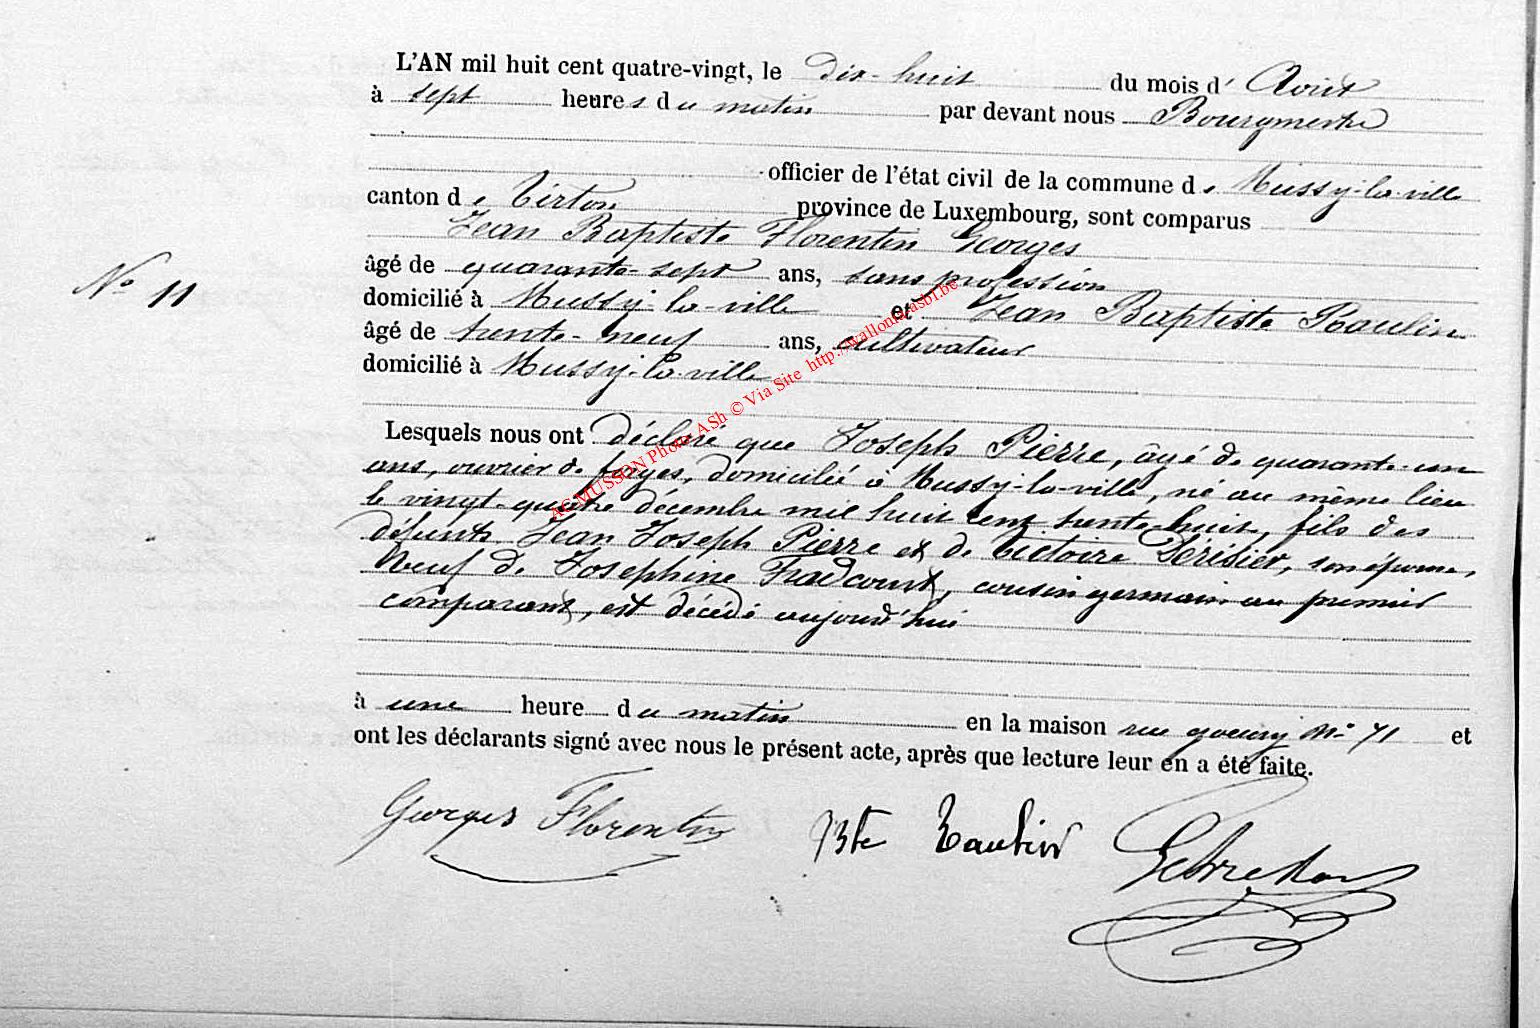 L'AN mil huit cent quatre-vingt, le dix-huit du mois d' Août
à sept heures du matin par devant nous Bourgmestre
officier de l'état civil de la commune de Mussy-la-ville
canton de Virton province de Luxembourg, sont comparus
Jean Baptiste Florentin Georges
âgé de quarante-sept ans, sans profession
N° 11
domicilié à Mussy-la-ville et Jean Baptiste Raulin
âgé de trente-neuf ans, cultivateur
domicilié à Mussy-la-ville
AC MUSSON Photo ASh © Via Site http://wallonia-asbl.be
Lesquels nous ont déclaré que Joseph Pierre, âgé de quarante-un
ans, ouvrier de forges, domicilié à Mussy-la-ville, né au même lieu
le vingt-quatre décembre mil huit cent trente-huit, fils des
défunts Jean Joseph Pierre et de Victoire Gérisier, son épouse,
Veuf de Josephine Fradcourt, cousin germain au premier
comparant, est décédé aujourd'hui
à une heure du matin en la maison rue N° 71 et
ont les déclarants signé avec nous le présent acte, après que lecture leur en a été faite.
Georges Florentin Bte Raulin